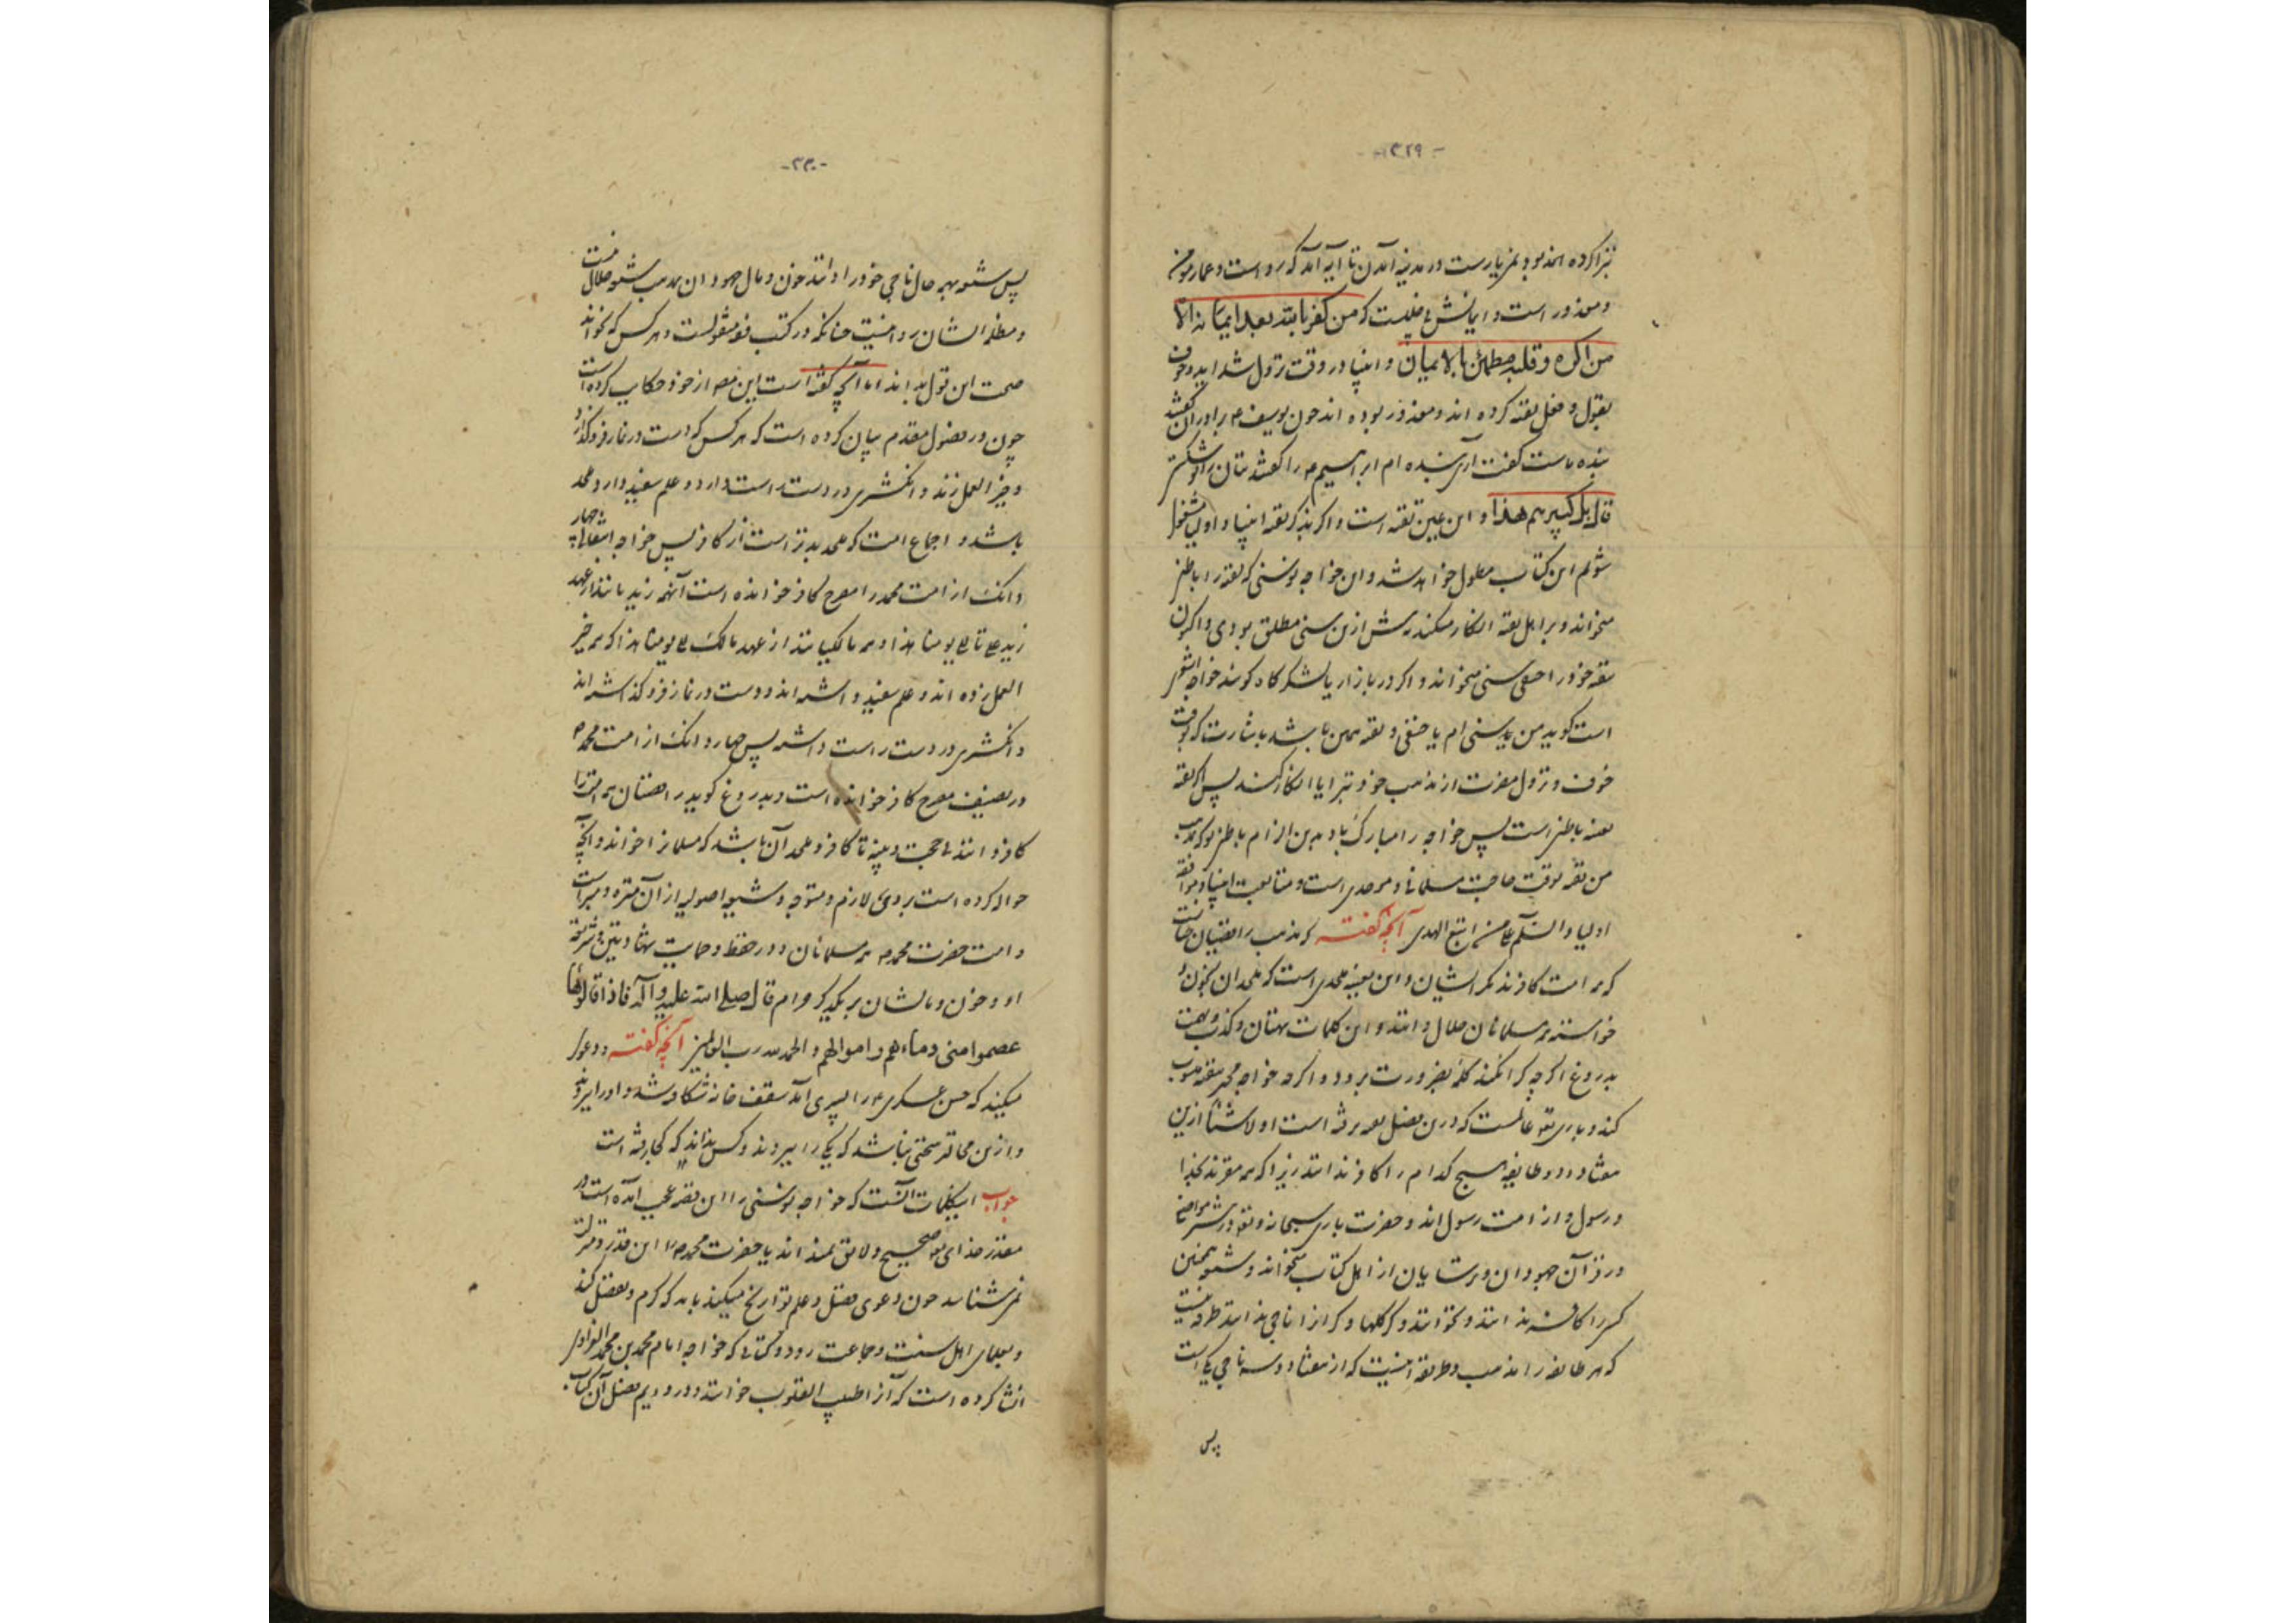 -۳۲۹-
تبرا کرده
و معذور است و ایمانش که من کفر بالله بعد ایمانه الا
من اکره و قلبه مطمئن بالایمان و انبیا در وقت نزول شداید و خوف
بقول و فعل تقیه کرده اند و معذور بوده اند چون یوسف ۴ برادران گفتند
بنده ماست گفت آری بنده ام ابراهیم ۴ را گفتند بتان را تو شکستی
قال بل کبیرهم هذا و این عین تقیه است و اگر بذکر تقیه انبیا و اولیا مشغول
شوم این کتاب مطول خواهد شد و این خواجه نوسنی که تقیه را باطنی
میخواند و بر اهل تقیه انکار میکند پیش ازین سنی مطلق بودی و اکنون
بتقیه خود را حنفی سنی میخواند و اگر در بازار یا لشکرگاه گویند خواجه اشعری
است گوید من سنی ام یا حنفی و تقیه همین باشد باشارت که بوقت
خوف و نزول مضرت از مذهب خود تبرا یا انکار کنند پس اگر تقیه
باطنی است پس خواجه را مبارک باد بدین الزام باطنی
من تقیه بوقت حاجت مسلمانی و موحدی است و متابعت انبیا و موافقه
اولیا والسلم علی من اتبع الهدی آنچه گفته که مذهب رافضیان چنانست
که همه امت کافرند مگر ایشان و این بعینه ملحدی است که ملحدان بخون و
خواسته همه مسلمانان حلال دانند و این کلمات بهتان و کذب و تهمت
بدروغ اگر چه کرا نکند کلمه بضرورت برود و اگر چه خواجه مجبر بتقیه منسوب
کند و باری تعالی عالمست که درین فصل چه رفته است اولا شیعه ازین
هفتاد و دو طایفه هیچ کدام را کافر ندانند زیرا که همه مقرند بخدا
و رسول و از امت رسول اند و حضرت باری سبحانه و تعالی در مواضع
در قرآن جهودان و ترسایان از اهل کتاب میخواند و شیعه همچنین
کس را کافر ندانند و نخوانند و گر کلها و گر از ناجی ندانند طرفه نیست
که هر طایفه را مذهب و طریقه اینست که از هفتاد و سه ناجی یکی است
پس
-۳۳۰-
پس شیعه بهر حال ناجی خود را دانند خون و مال جهودان بمذهب شیعه حلال نیست
و مظلمه ایشان روا نیست چنانکه در کتب فقه منقولست و هر کس که بخواند
صحت این قول بداند اما آنچه گفته است این مصنف از خود حکایت کرده است
چون در فصول مقدم بیان کرده است که هر کس که دست در نماز فرو گذارد
و خیر العمل زند و انگشتری در دست راست دارد و علم سفید دارد ملحد
باشد و اجماع امت که ملحد بدتر است از کافر پس خواجه انتقالی چهار
دانگ از امت محمد را مصرح کافر خوانده است آنهمه زیدیانند از عهد
زید علی تا الی یومنا هذا و همه مالکیانند از عهد مالک الی یومنا هذا که همه خیر
العمل زده اند و علم سفید داشته اند و دست در نماز فرو گذاشته اند
و انگشتری در دست راست داشته پس چهار دانگ از امت محمد ۴
در تصنیف مصرح کافر خوانده است و بدروغ گوید رافضیان همه امت را
کافر دانند بی حجت و بینه تا کافر و ملحد آن باشد که مسلمانرا خواند و آنچه
حواله کرده است بروی لازم و متوجه و شیعه اصولیه از آن منزه و مبراست
و امت حضرت محمد ۴ همه مسلمانان و در حفظ و حمایت شهادتین و شریعت
او و خون و مالشان بر یکدیگر حرام قال صلی الله علیه و آله فاذا قالوها
عصموا منی دماءهم و اموالهم والحمد لله رب العالمین آنچه گفته و دعوی
میکنند که حسن عسکری ۴ را پسری آمد سقف خانه شکافته شد و او را ببردند
و ازین محالتر سخنی نباشد که یکی را ببردند و کس نداند که کجا رفته است
جواب این کلمات آنست که خواجه نوسنی را این قصه عجب آمده است و در
مقدور خدای تعالی صحیح و لایق نمیداند یا حضرت محمد ۴ را این قدر و منزلت
نمی شناسد چون دعوی فضل و علم تواریخ میکند باید که کرم و تفضل کند
و بعلمای اهل سنت و جماعت رود و کتابی که خواجه امام محمد بن محمد
انشا کرده است که آنرا اطیب القلوب خوانند و در دویم فصل آن کتاب